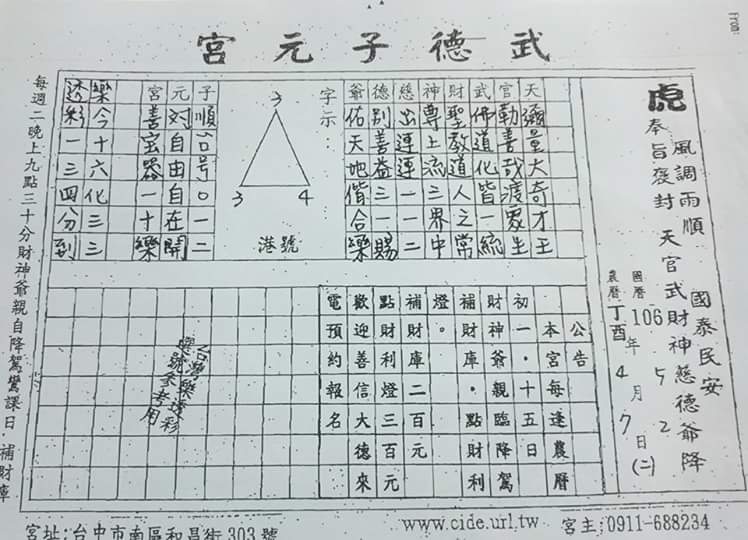 武德子元宮
From:
虎
風調雨順 國泰民安
奉旨褒封 天官武財神慈德爺降
國曆106年5月2日(二)
農曆丁酉年4月7日
天彌量大奇才王
官勒善哉渡眾生
武佛道化皆一統
財聖教道人之常
神尊上流三界中
慈出運運一一二
德別善益三一賜
爺佑天地偕合樂
字示：
3
3 4
港號
子順台号0一二
元对自由自在開
宮善宝器一十樂
樂今十六化三三
透彩一三四分到
公告
本宮每逢農曆
初一‧十五日
財神爺親臨降駕
補財庫‧點財利
燈。
補財庫二百元
點財利燈三百元
歡迎善信大德來
電預約報名
台灣樂透彩
選號參考用
每週二晚上九點三十分財神爺親自降駕鸞課日‧補財庫
www.cide.url.tw 宮主:0911-688234
宮址:台中市南區和昌街303號